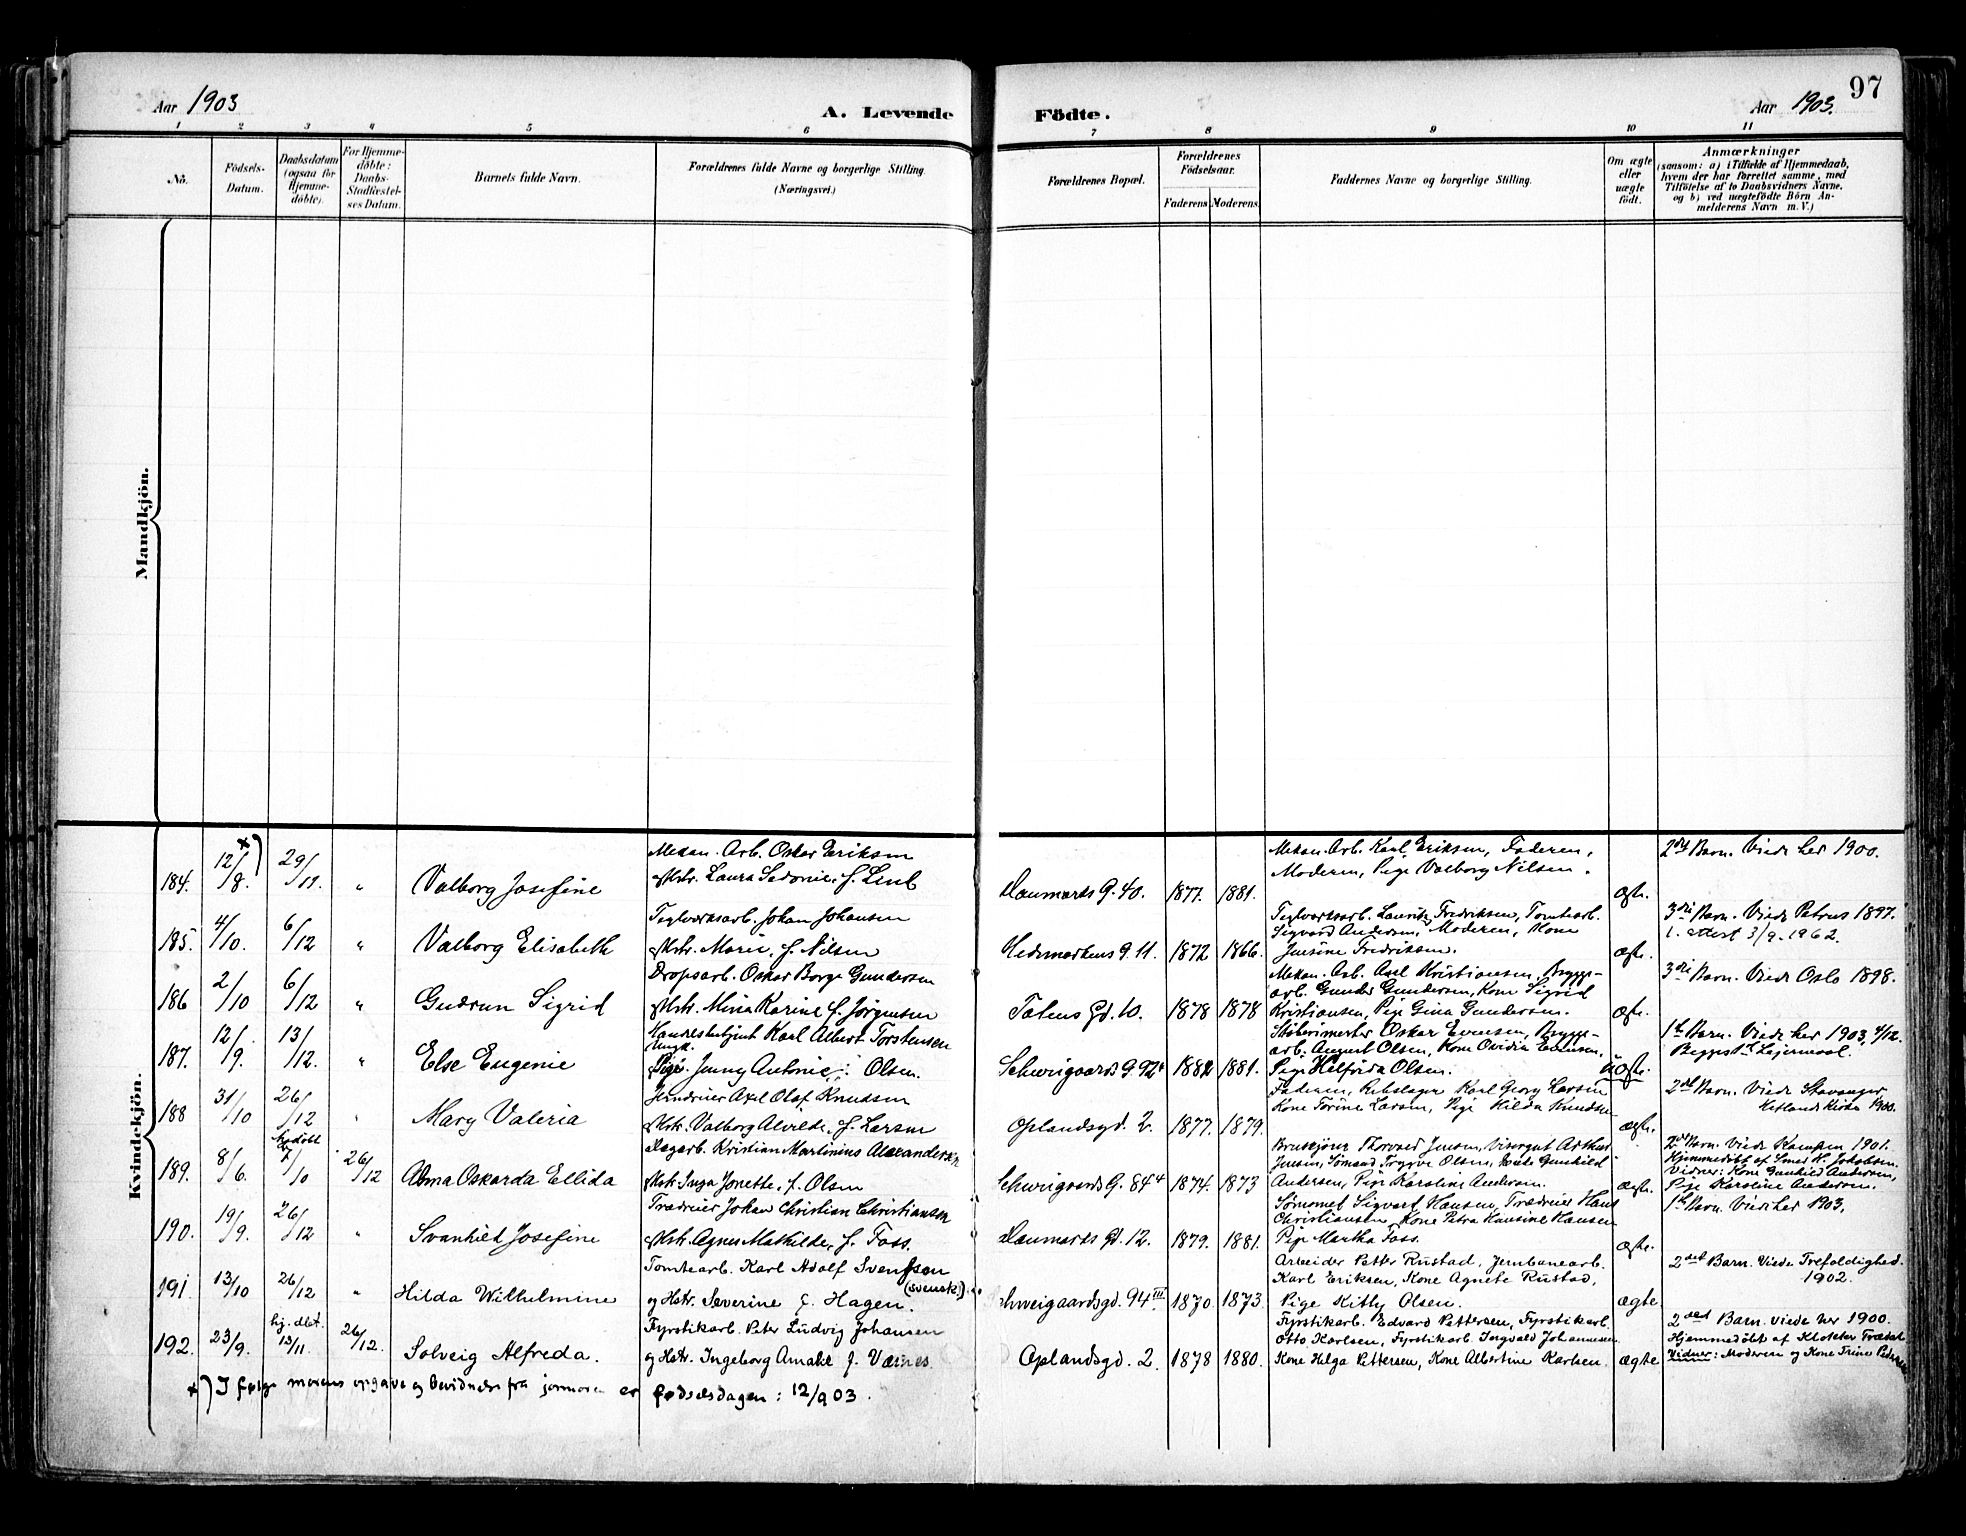 97
Aar 1903
A. Levende
Födte.
Aar 1903.
1 2 3 4 5 6 7 8 9 10 11
No.
Födsels-
Datum.
Daabsdatum
(ogsaa for
Hjemme-
döbte).
For Hjemme-
döbte:
Daabs-
Stadfæstel-
ses Datum.
Barnets fulde Navn.
Forældrenes fulde Navne og borgerlige Stilling.
(Næringsvei.)
Forældrenes Bopæl.
Forældrenes
Födselsaar.
Faderens Moderens
Faddernes Navne og borgerlige Stilling.
Om ægte
eller
uægte
födt.
Anmærkninger
(saasom: a) i Tilfælde af Hjemmedaab,
hvem der har forrettet samme, med
Tilföielse af to Daabsvidners Navne,
og b) ved uægtefödte Börn An-
melderens Navn m. V.)
Mandkjön.
Kvindekjön.
184. 12/8. x) 29/11. " Valborg Josefine
Mekan. Arb. Oskar Eriksen
Hstr. Laura f.
Danmarks G. 40. 1877. 1881.
Mekan. Arb. Karl Eriksen, Faderen,
Moderen, Pige Valborg Nilsen.
ægte.
2det Barn. Viede her 1900.
185. 4/10. 6/12 " Valborg Elisabeth
Teglverksarb. Johan Johansen
Hstr. Marie, f. Nilsen
Hedemarkens G. 11. 1872 1866.
Teglverksarb. Lauritz Fredriksen, Tomtearb.
Sigvard Andersen, Moderen, Kone
Jensine Fredriksen.
ægte.
3die Barn. Viede Petrus 1897.
1. attest 3/9. 1962.
186 2/10 6/12 " Gudrun Sigrid
Oskar Borge Gundersen
Hstr. Mina Karine f. Jörgensen
Totens Gd. 10. 1878 1878
Mekan. Arb. Axel Kristiansen, Brygge-
arb. Gunder Gundersen, Kone Sigrid
Kristiansen, Pige Gina Gundersen.
ægte.
3die Barn. Viede Oslo 1898.
187. 12/9. 13/12. " Else Eugenie
Karl Albert Torstensen
Ungk.
Pige Jenny Antonie Olsen.
Schweigaards G. 92 4 1882 1881.
Oskar Evensen, Brygge-
arb. August Olsen, Kone Ovidia Evensen,
Pige Helfrida Olsen.
uægte.
1ste Barn. Viede her 1903, 4/12.
Begges 1ste Leiermaal.
188 31/10 26/12 " Mary Valeria
Jerndreier Axel Olaf Knudsen
Hstr. Valborg Alvilde, f. Larsen
Oplandsgd. 2. 1877. 1879.
Faderen, Rebslager Karl Georg Larsen
Kone Torine Larsen, Pige Hilda Knudsen
ægte.
2det Barn. Viede Stavanger
Hetlands Kirke 1900.
189. 8/6. hjdöbt 7/10 26/12 Alma Oskarda Ellida
Dagarb. Kristian Martinius Alexandersen
Hstr. Inga Jonette, f. Olsen
Schweigaards G. 84 4 1874. 1873
Thorvald Jensen, Visergut Arthur
Jensen, Sömand Trygve Olsen, Gunhild
Andersen, Pige Karoline Andersen.
ægte.
2det Barn. Viede Kampen 1901.
Hjemmedöbt af Smed K. Jakobsen.
Vidner: Kone Gunhild Andersen,
Pige Karoline Andersen.
190. 19/9. 26/12 " Svanhild Josefine
Trædreier Johan Christian Christiansen
Hstr. Agnes Mathilde, f. Foss.
Danmarks Gd. 12. 1879. 1881.
Sigvart Hansen, Trædreier Hans
Christiansen, Kone Petra Hansine Hansen
Pige Martha Foss.
ægte.
1ste Barn. Viede her 1903.
191. 13/10 26/12 " Hilda Wilhelmine
Tomtearb. Karl Adolf Svensson
(svensk)
og Hstr. Severine f. Hagen.
Schweigaardsgd. 94 III. 1870. 1873.
Arbeider Petter Rustad, Jernbanearb.
Karl Eriksen, Kone Agnete Rustad,
Pige Kitty Olsen.
ægte
2det Barn. Viede Trefoldighed.
1902.
192. 23/9. hj. dbt. 13/11. 26/12. Solveig Alfreda.
Fyrstikarb. Peter Ludvig Johansen
og Hstr. Ingeborg Amalie f. Værnes.
Oplandsgd. 2. 1878 1880.
Fyrstikarb. Edvard Pettersen, Fyrstikarb.
Otto Karlsen, Fyrstikarb. Ingvald Johannesen
Kone Helga Pettersen, Kone Albertine Karlsen.
ægte
2det Barn. Viede her 1900.
Hjemmedöbt af Klokker
Vidner: Moderen og Kone Trine Pedersen
x) I følge morens opgave og bevidnelse fra jormoren er fødselsdagen: 12/9 03.